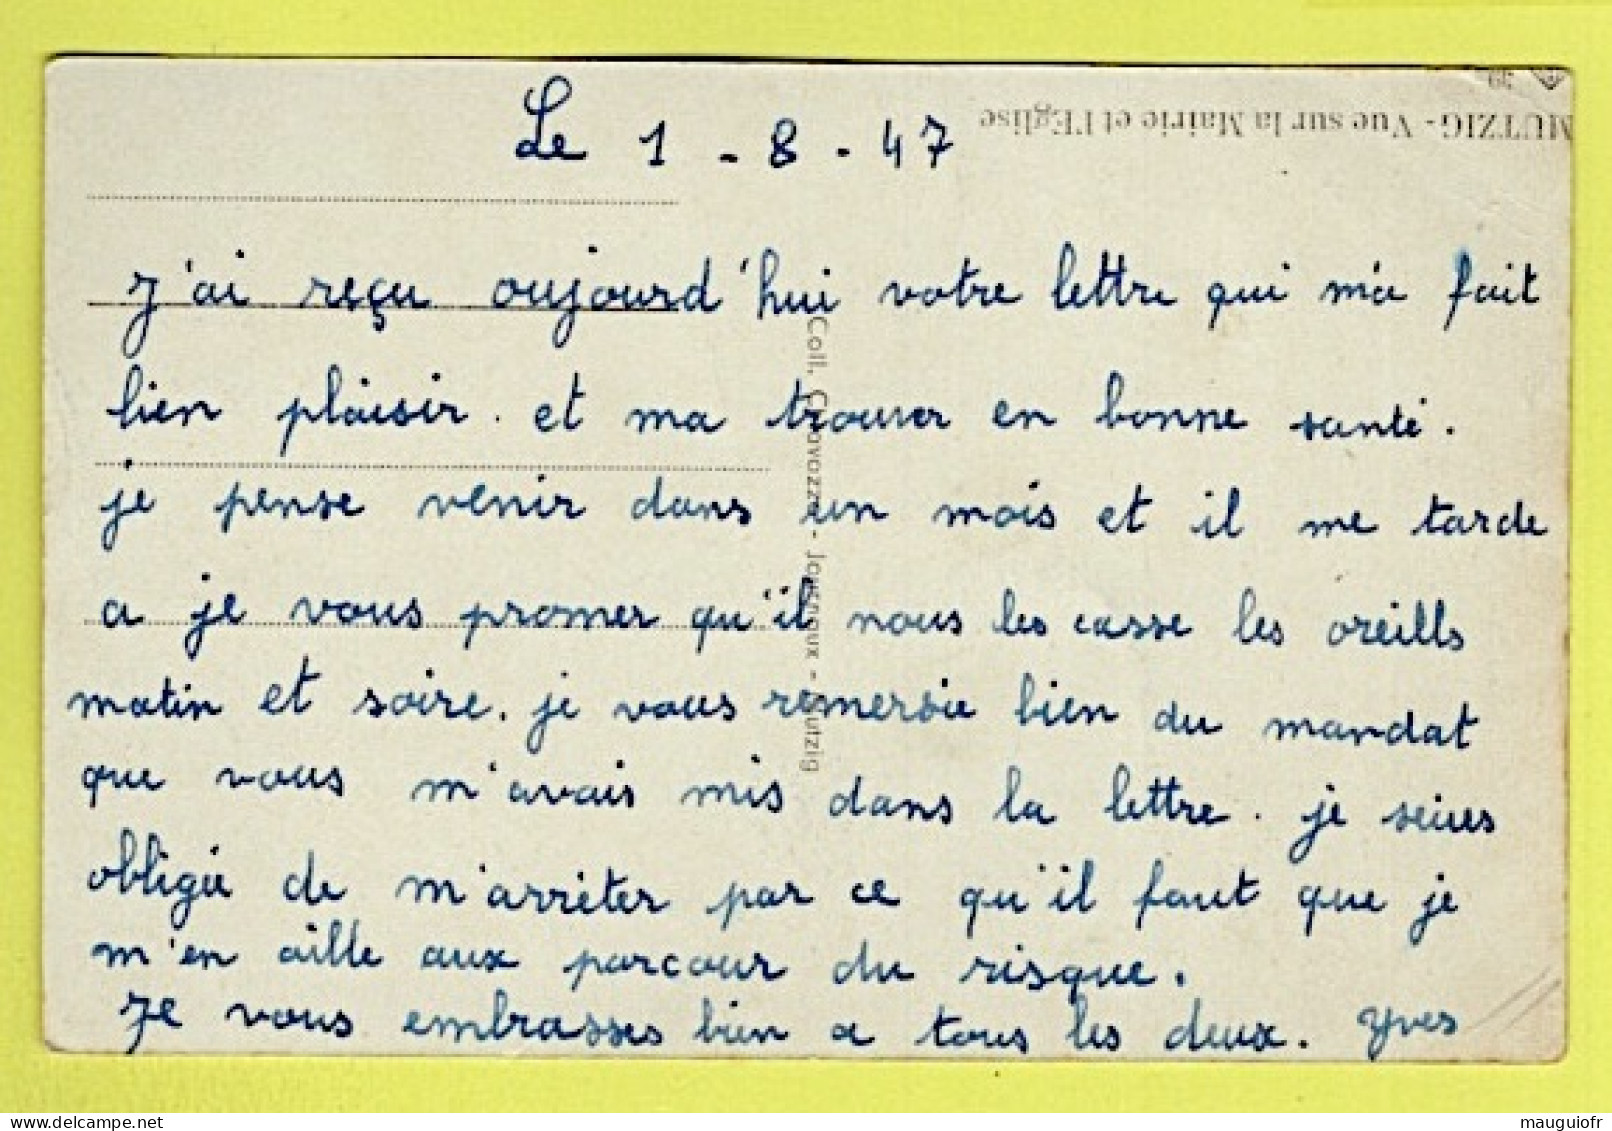 Le 1 - 8 - 47
MUTZIG - Vue sur la Mairie et l'Eglise
J'ai reçu oujourd'hui votre lettre qui m'a fait
bien plaisir. et ma trouver en bonne santé.
je pense venir dans un mois et il me tarde
a je vous promer qu'il nous les casse les oreills
matin et soire. je vous remersie bien du mandat
que vous m'avais mis dans la lettre. je seiues
obligée de m'arrèter par ce qu'il faut que je
m'en aille aux parcour du risque.
Je vous embrasses bien a tous les deux. Yves
Coll. Cravazz - Journaux - Mutzig
mauguiofr